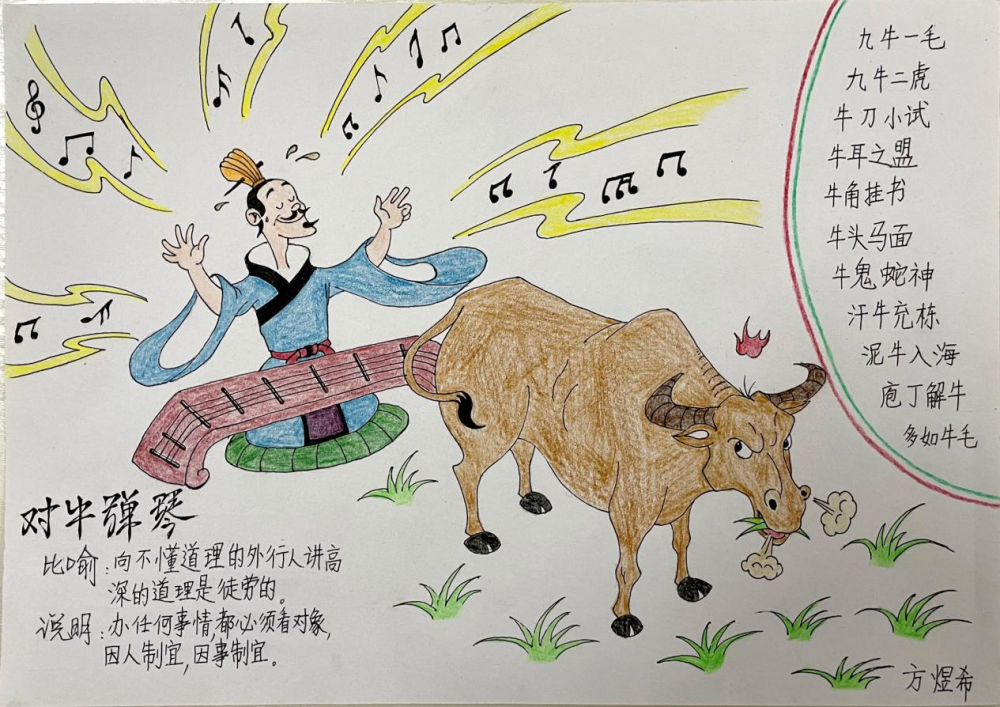 九牛一毛
九牛二虎
牛刀小试
牛耳之盟
牛角挂书
牛头马面
牛鬼蛇神
汗牛充栋
泥牛入海
庖丁解牛
多如牛毛
对牛弹琴
比喻：向不懂道理的外行人讲高
深的道理是徒劳的。
说明：办任何事情，都必须看对象，
因人制宜，因事制宜。
方煜希